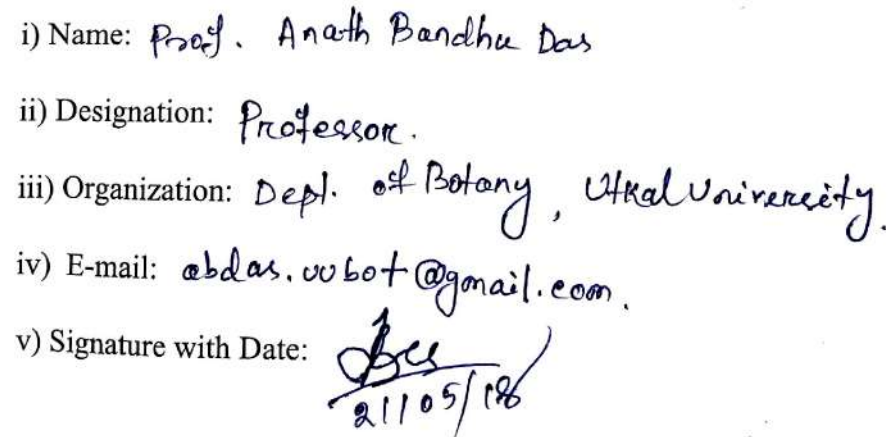 i) Name: Prof. Anath Bandhu Das
ii) Designation: Professor.
iii) Organization: Dept. of Botany, Utkal University.
iv) E-mail: abdas.uubot@gmail.com.
v) Signature with Date: Das
21/05/18